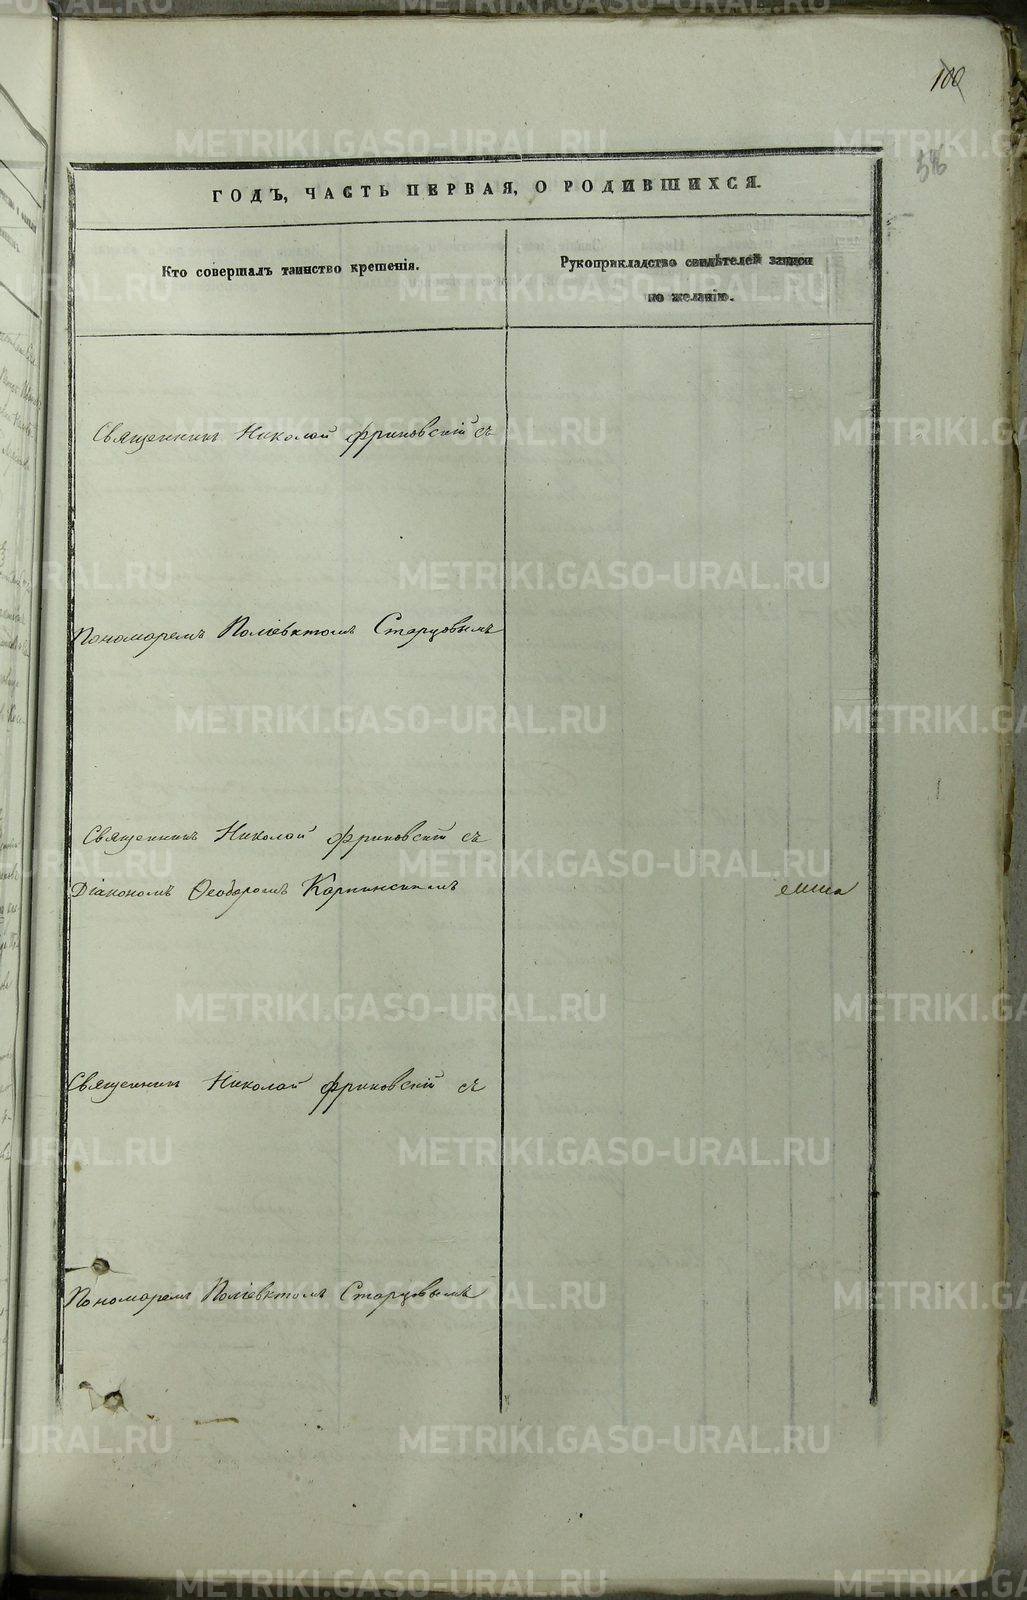 100
ГОДЪ, ЧАСТЬ ПЕРВАЯ, О РОДИВШИХСЯ.
Кто совершалъ таинство крещенія.
Рукоприкладство свидѣтелей записи
по желанію.
Священникъ Николай Фриковскій съ
Пономаремъ Поліевктомъ Старцовымъ
Священникъ Николай Фриковскій съ
Діакономъ Ѳеодоромъ Карпинскимъ
Священникъ Николай Фриковскій съ
Пономаремъ Поліевктомъ Старцовымъ
METRIKI.GASO-URAL.RU